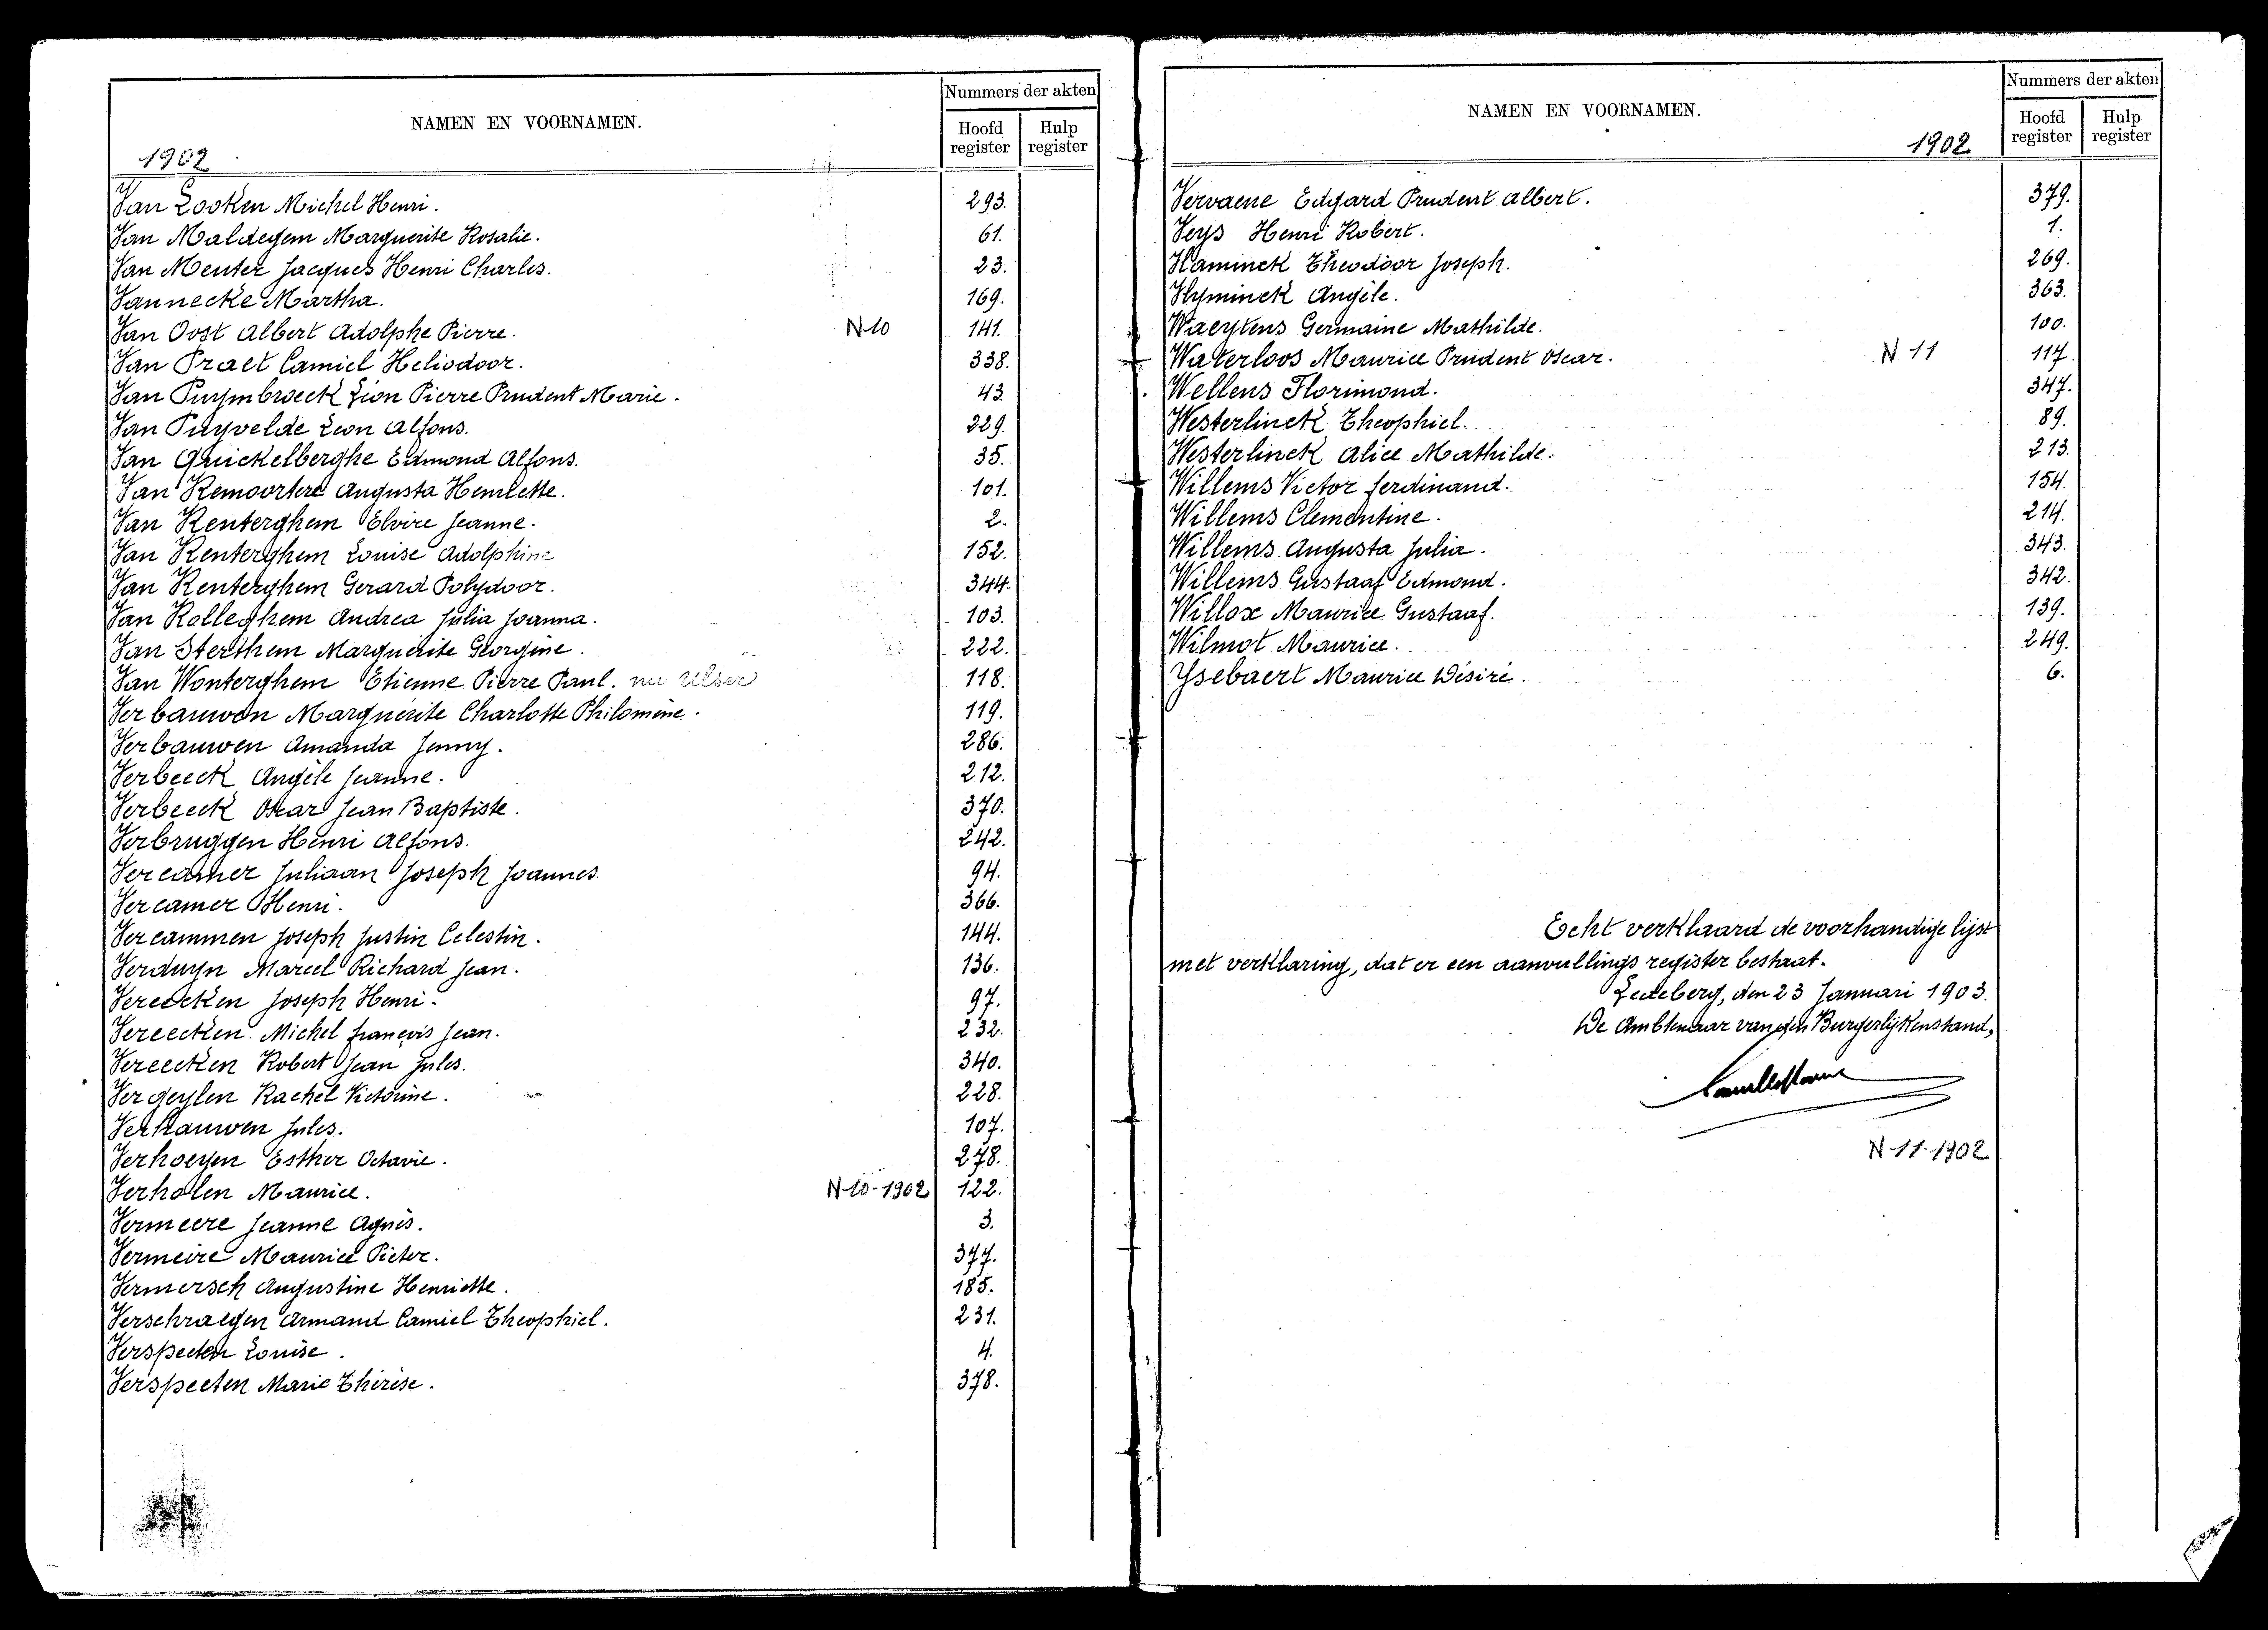 NAMEN EN VOORNAMEN.
Nummers der akten
Hoofd register
Hulp register
1902
Van Looken Michel Henri. 293.
Van Maldegem Marguerite Rosalie. 61.
Van Meuter Jacques Henri Charles. 23.
Vannecke Martha. 169.
Van Oost Albert Adolphe Pierre. N-10 141.
Van Praet Camiel Heliodoor. 338.
Van Puymbroeck Léon Pierre Prudent Marie. 43.
Van Puyvelde Léon Alfons. 229.
Van Quickelberghe Edmond Alfons. 35.
Van Remoortere Augusta Henriette. 101.
Van Renterghem Elvire Jeanne. 2.
Van Renterghem Louise Adolphine 152.
Van Renterghem Gerard Polydoor. 344.
Van Rolleghem Andrea Julia Joanna. 103.
Van Sterthem Marguerite Georgine. 222.
Van Wonterghem Etienne Pierre Paul. 118.
Verbauwen Marguérite Charlotte Philomène. 119.
Verbauwen Amanda Jenny. 286.
Verbeeck Angèle Jeanne. 212.
Verbeeck Oscar Jean Baptiste. 370.
Verbruggen Henri Alfons. 242.
Vercamer Juliaan Joseph Joannes. 94.
Vercamer Henri. 366.
Vercammen Joseph Justin Celestin. 144.
Verduyn Marcel Richard Jean. 136.
Vereecken Joseph Henri. 97.
Vereecken Michel françois Jean. 232.
Vereecken Robert Jean Jules. 340.
Vergeylen Rachel Victorine. 228.
Verhauwen Jules. 107.
Verhoeyen Esther Octavie. 278.
Verholen Maurice. N-10-1902 122.
Vermeere Jeanne Agnès. 3.
Vermeire Maurice Pieter. 377.
Vermersch Augustine Henriette. 185.
Verschraegen Armand Camiel Theophiel. 231.
Verspeeten Louise. 4.
Verspeeten Marie Thérèse. 378.
NAMEN EN VOORNAMEN.
Nummers der akten
Hoofd register
Hulp register
1902
Vervaene Edgard Prudent Albert. 379.
Veys Henri Robert. 1.
Vlaminck Theodoor Joseph. 269.
Vlyminck Angèle. 363.
Waeytens Germaine Mathilde. 100.
Waterloos Maurice Prudent Oscar. N 11 117.
Wellens Florimond. 347.
Westerlinck Theophiel. 89.
Westerlinck Alice Mathilde. 213.
Willems Victor ferdinand. 154.
Willems Clementine. 214.
Willems Augusta Julia. 343.
Willems Gustaaf Edmond. 342.
Willox Maurice Gustaaf. 139.
Wilmot Maurice. 249.
Ysebaert Maurice Désiré. 6.
Echt verklaard de voorhandige lijst
met verklaring, dat er een aanvullings register bestaat.
Ledeberg, den 23 Januari 1903.
De Ambtenaar van den Burgerlijkenstand,
N-11-1902